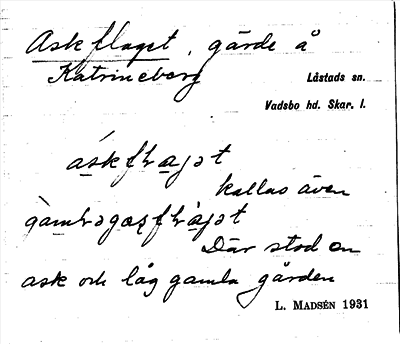 Askflaget, gärde å
Katrineberg
Låstads sn.
Vadsbo hd. Skar. l.
kallas även
Där stod en
ask och låg gamla gården
L. MADSÉN 1931